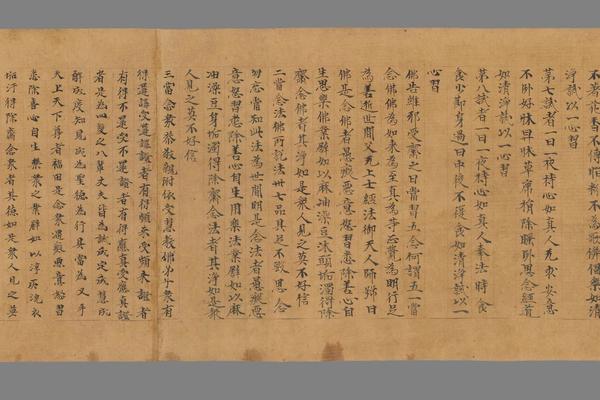 不著花香不傅脂粉不為歌儛倡樂如清
淨戒以一心習
第七戒者一日一夜持心如真人无求安意
不卧好牀卑牀草席捐除睡卧思念經道
如清淨戒以一心習
第八戒者一日一夜持心如真人奉法時食
食少節身過日中後不復食如清淨戒以一
心習
佛告維耶受齋之日當習五念何謂五一當
念佛佛為如來為至真為等正覺為明行足
為善逝世間父无上士經法御天人師號曰
佛是念佛者愚癡惡意怒習悉除善心自
生思樂佛業譬如以麻油澡豆沐頭垢濁得除
齋念佛者其淨如是衆人見之莫不好信
二當念法佛所說法卅七品具足不毀思念
勿忘當知此法為世間明是念法者愚癡惡
意怒習悉除善心自生用樂法業譬如以麻
油澡豆垢濁得除齋念法者其淨如是衆
人見之莫不好信
三當念衆恭敬親附依受慧教佛弟子衆有
得溝港受溝港證者有得頻來受頻來證者
有得不還受不還證者有得應真受應真證
者是為四雙之八輩丈夫皆為戒成定成慧成
解成度知見成為聖德為行具當為叉手
天上天下尊者福田是念衆愚癡惡意怒習
悉除善心自生樂衆之業譬如以淳灰浣衣
垢汙得除齋念衆者其德如是衆人見之莫